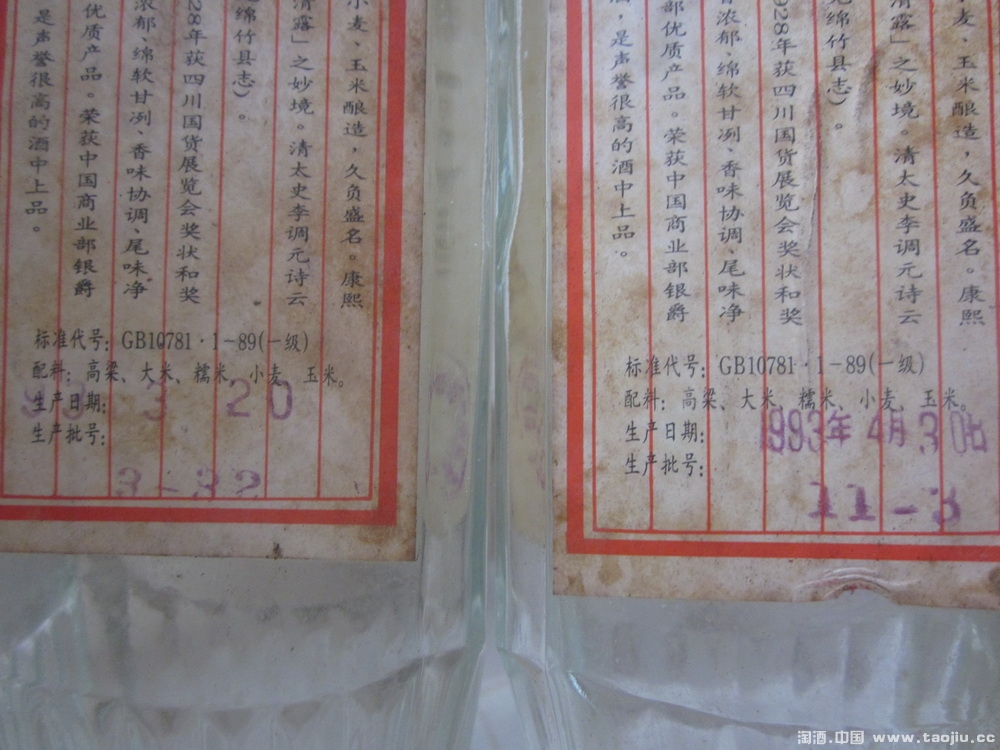 小麦、玉米酿造，久负盛名。康熙
绵竹县志）。
清露」之妙境。清太史李调元诗云
928年获四川国货展览会奖状和奖
浓郁、绵软甘冽、香味协调、尾味净
优质产品。荣获中国商业部银爵
是声誉很高的酒中上品。
标准代号：GB10781·1-89(一级)
配料：高粱、大米、糯米、小麦、玉米。
生产日期：93 3 20
生产批号：
3-32
小麦、玉米酿造，久负盛名。康熙
见绵竹县志）。
清露」之妙境。清太史李调元诗云
928年获四川国货展览会奖状和奖
香浓郁、绵软甘冽、香味协调、尾味净
部优质产品。荣获中国商业部银爵
，是声誉很高的酒中上品。
标准代号：GB10781·1-89(一级)
配料：高粱、大米、糯米、小麦、玉米。
生产日期：1993年4月30
生产批号：
11-3
淘酒.中国 www.taojiu.cc